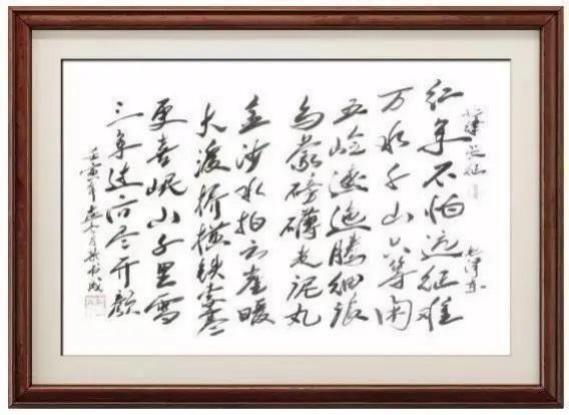 七律 长征 毛泽东
红军不怕远征难
万水千山只等闲
五岭逶迤腾细浪
乌蒙磅礴走泥丸
金沙水拍云崖暖
大渡桥横铁索寒
更喜岷山千里雪
三军过后尽开颜
壬寅年